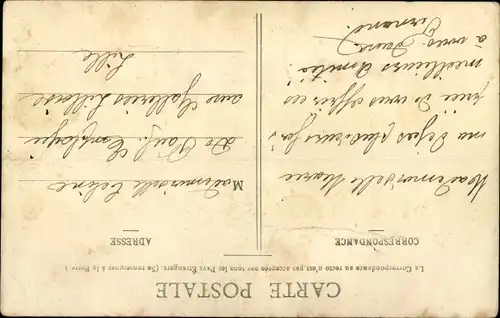 CARTE POSTALE
La Correspondance au recto n'est pas acceptée par tous les Pays Étrangers. (Se renseigner à la Poste)
CORRESPONDANCE
Mademoiselle Marie
ma déjas plusieurs foi
prié de vous offrir ces
meilleures Amitiés.
à vous
Fernand
ADRESSE
Mademoiselle Celine
De
aux Galeries Lilloise
Lille